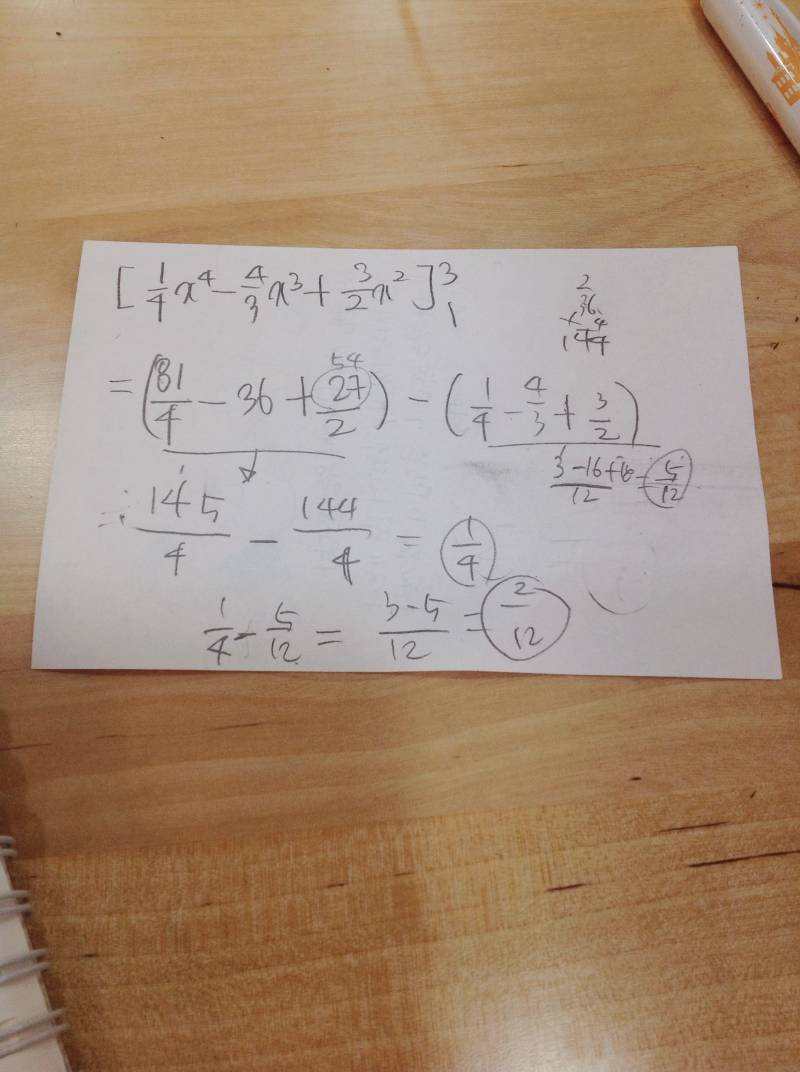 [1/4 x⁴ - 4/3 x³ + 3/2 x²]³₁
2
36
×4
144
54
= (81/4 - 36 + 27/2) - (1/4 - 4/3 + 3/2)
3-16+18/12 = 5/12
= 145/4 - 144/4 = 1/4
1/4 - 5/12 = 3-5/12 = 2/12